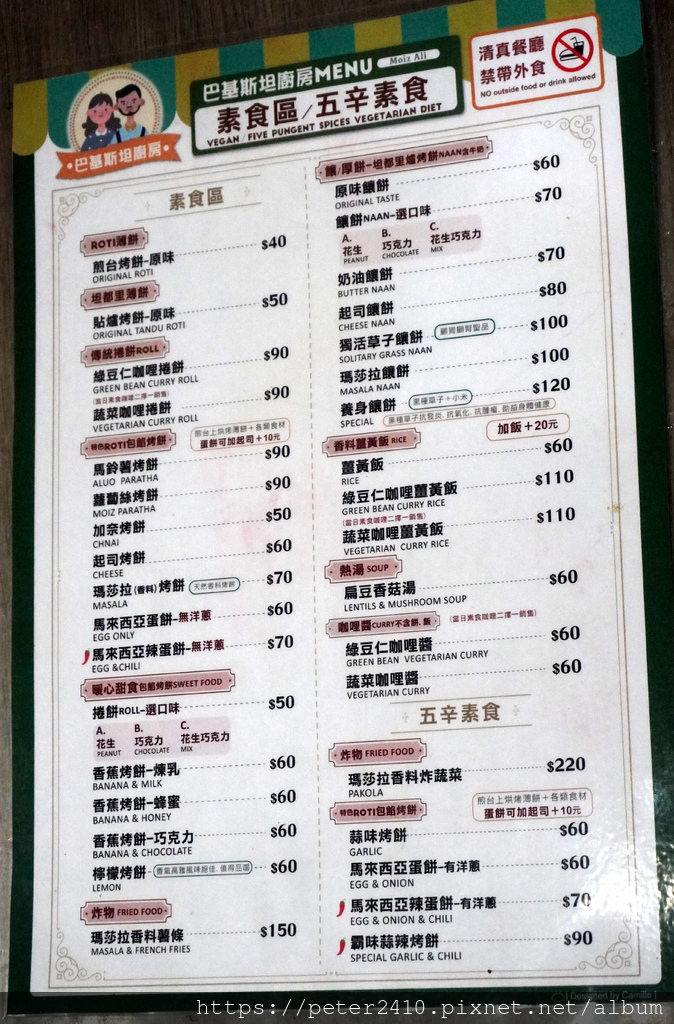 巴基斯坦廚房MENU Moiz Ali
素食區/五辛素食
VEGAN/FIVE PUNGENT SPICES VEGETARIAN DIET
清真餐廳
禁帶外食
NO outside food or drink allowed
巴基斯坦廚房
素食區
ROTI薄餅
煎台烤餅-原味 $40
ORIGINAL ROTI
坦都里薄餅
貼爐烤餅-原味 $50
ORIGINAL TANDU ROTI
傳統捲餅ROLL
綠豆仁咖哩捲餅 $90
GREEN BEAN CURRY ROLL
(當日素食咖哩二擇一銷售)
蔬菜咖哩捲餅 $90
VEGETARIAN CURRY ROLL
特色ROTI包餡烤餅
煎台上烘烤薄餅+各類食材
蛋餅可加起司+10元
馬鈴薯烤餅 $90
ALUO PARATHA
蘿蔔絲烤餅 $90
MOIZ PARATHA
加奈烤餅 $50
CHNAI
起司烤餅 $60
CHEESE
瑪莎拉(香料)烤餅 天然香料烤餅 $70
MASALA
馬來西亞蛋餅-無洋蔥 $60
EGG ONLY
馬來西亞辣蛋餅-無洋蔥 $70
EGG &CHILI
暖心甜食包餡烤餅SWEET FOOD
捲餅ROLL-選口味 $50
A. B. C.
花生 巧克力 花生巧克力
PEANUT CHOCOLATE MIX
香蕉烤餅-煉乳 $60
BANANA & MILK
香蕉烤餅-蜂蜜 $60
BANANA & HONEY
香蕉烤餅-巧克力 $60
BANANA & CHOCOLATE
檸檬烤餅 香氣高雅風味絕佳,值得品嚐 $60
LEMON
炸物 FRIED FOOD
瑪莎拉香料薯條 $150
MASALA & FRENCH FRIES
饢/厚餅-坦都里爐烤餅NAAN含牛奶
原味饢餅 $60
ORIGINAL TASTE
饢餅NAAN-選口味 $70
A. B. C.
花生 巧克力 花生巧克力
PEANUT CHOCOLATE MIX
奶油饢餅 $70
BUTTER NAAN
起司饢餅 $80
CHEESE NAAN
獨活草子饢餅 顧胃顧腎聖品 $100
SOLITARY GRASS NAAN
瑪莎拉饢餅 $100
MASALA NAAN
養身饢餅 黑種草子+小米 $120
SPECIAL 黑種草子抗發炎.抗氧化.抗腫瘤.助益身體健康
香料薑黃飯 RICE 加飯+20元
薑黃飯 $60
RICE
綠豆仁咖哩薑黃飯 $110
GREEN BEAN CURRY RICE
(當日素食咖哩二擇一銷售)
蔬菜咖哩薑黃飯 $110
VEGETARIAN CURRY RICE
熱湯 SOUP
扁豆香菇湯 $60
LENTILS & MUSHROOM SOUP
咖哩醬CURRY不含餅.飯 (當日素食咖哩二擇一銷售)
綠豆仁咖哩醬 $60
GREEN BEAN VEGETARIAN CURRY
蔬菜咖哩醬 $60
VEGETARIAN CURRY
五辛素食
炸物 FRIED FOOD
瑪莎拉香料炸蔬菜 $220
PAKOLA
特色ROTI包餡烤餅
煎台上烘烤薄餅+各類食材
蛋餅可加起司+10元
蒜味烤餅 $60
GARLIC
馬來西亞蛋餅-有洋蔥 $60
EGG & ONION
馬來西亞辣蛋餅-有洋蔥 $70
EGG & ONION & CHILI
霸味蒜辣烤餅 $90
SPECIAL GARLIC & CHILI
https://peter2410.pixnet.net/album